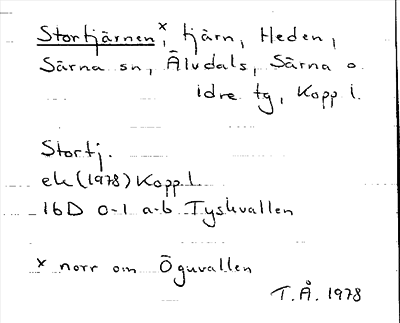 Stortjärnen ˣ, tjärn, Heden,
Särna sn, Älvdals, Särna o.
idre tg, Kopp l.
Stortj.
ek (1978) Kopp l
16D 0-1 a-b Tyskvallen
x norr om Öguvallen
T.Å. 1978